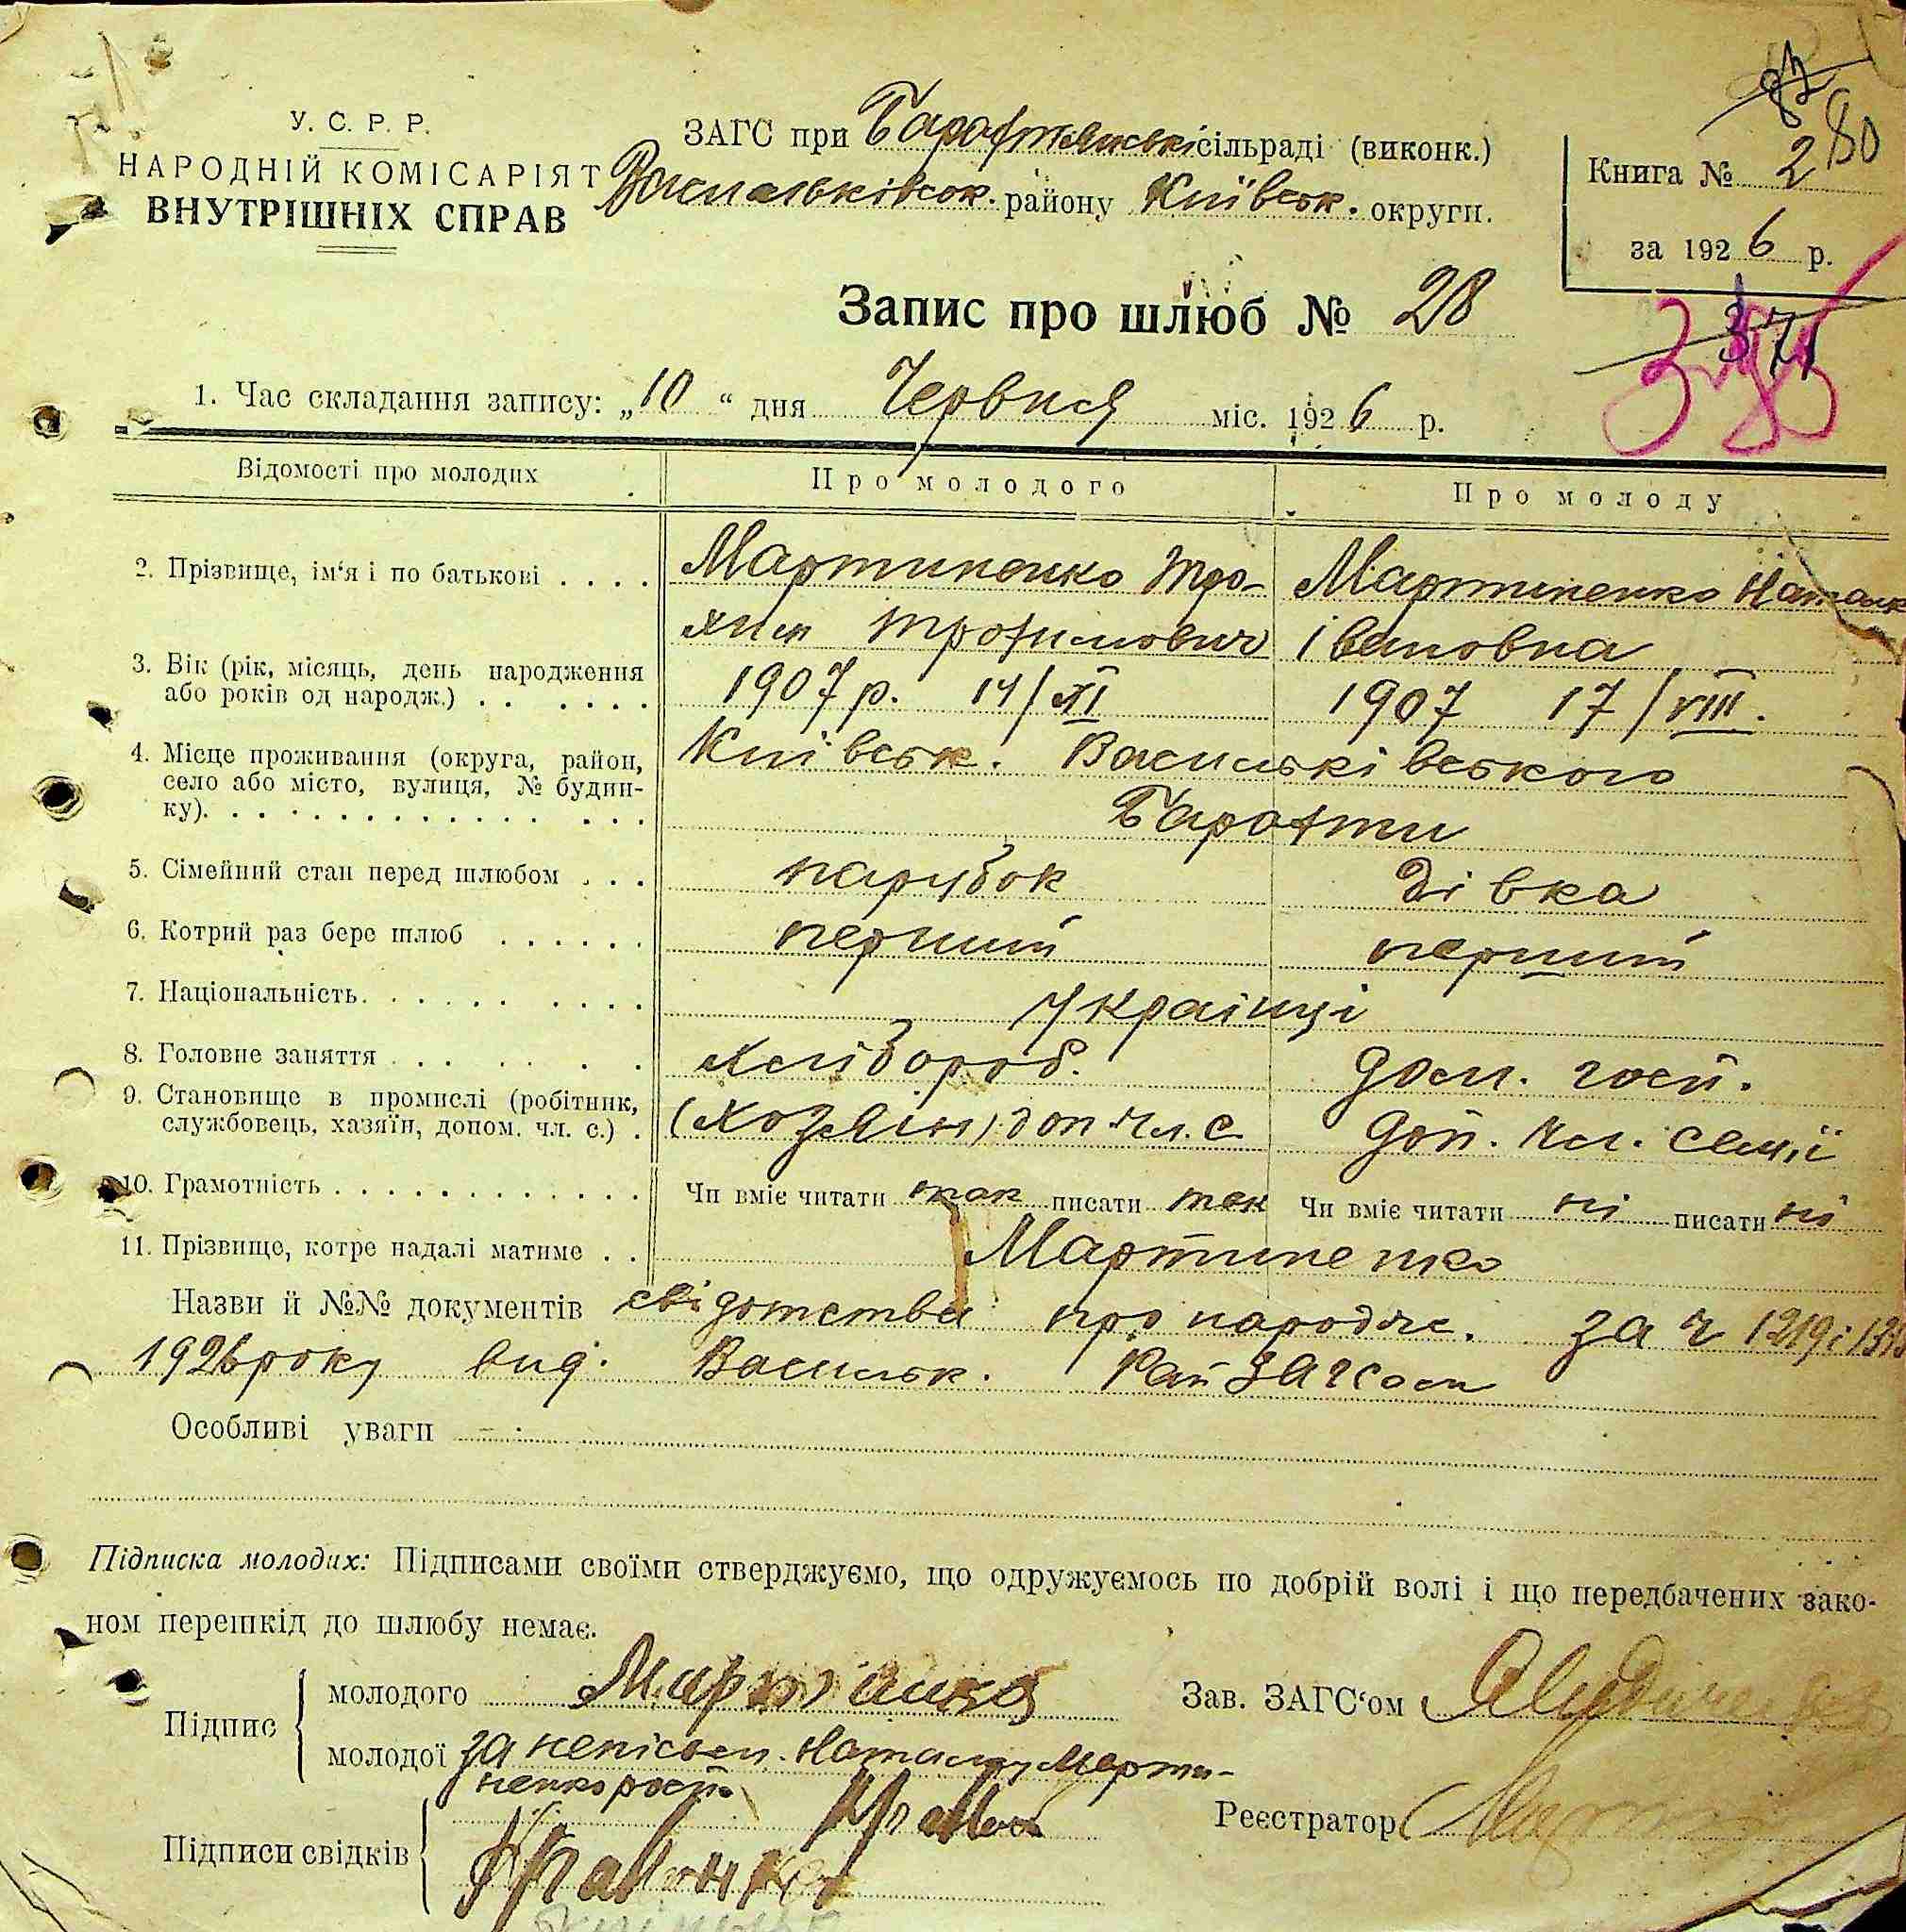 У. С. Р. Р.
НАРОДНІЙ КОМІСАРІЯТ
ВНУТРІШНІХ СПРАВ
ЗАГС при Барахтянські сільраді (виконк.)
Васильківськ. району Київськ. округи.
82
80
Книга № 2
за 1926 р.
Запис про шлюб № 28
371
1. Час складання запису: „10“ дня Червня міс. 1926 р.
Відомості про молодих Про молодого Про молоду
2. Прізвище, ім‘я і по батькові . . . . Мартиненко Тро- Мартиненко Наталк
хим Трохимович Івановна
3. Вік (рік, місяць, день народження
або років од народж.) . . . . . . 1907 р. 14/XI 1907 17/VIII.
4. Місце проживання (округа, район,
село або місто, вулиця, № будин-
ку). Київськ. Васильківського
Барахти
5. Сімейний стан перед шлюбом . . . парубок Дівка
6. Котрий раз бере шлюб . . . . . . перший перший
7. Національність. Українці
8. Головне заняття Хлібороб. Дом. госп.
9. Становище в промислі (робітник,
службовець, хазяїн, допом. чл. с.) . (Хозяїн) доп чл. с. Доп. чл. семії
10. Грамотність Чи вміє читати так писати так Чи вміє читати ні писати ні
11. Прізвище, котре надалі матиме . . Мартиненко
Назви й №№ документів свідотства про народж. за ч 1219 і
1926 року вид. Васильк. Рай ЗАГСом
Особливі уваги
Підписка молодих: Підписами своїми стверджуємо, що одружуємось по добрій волі і що передбачених зако-
ном перешкід до шлюбу немає.
Підпис
молодого
Зав. ЗАГС‘ом
молодої за неписьм. Наталку Марти-
ненко росп.
Реєстратор
Підписи свідків